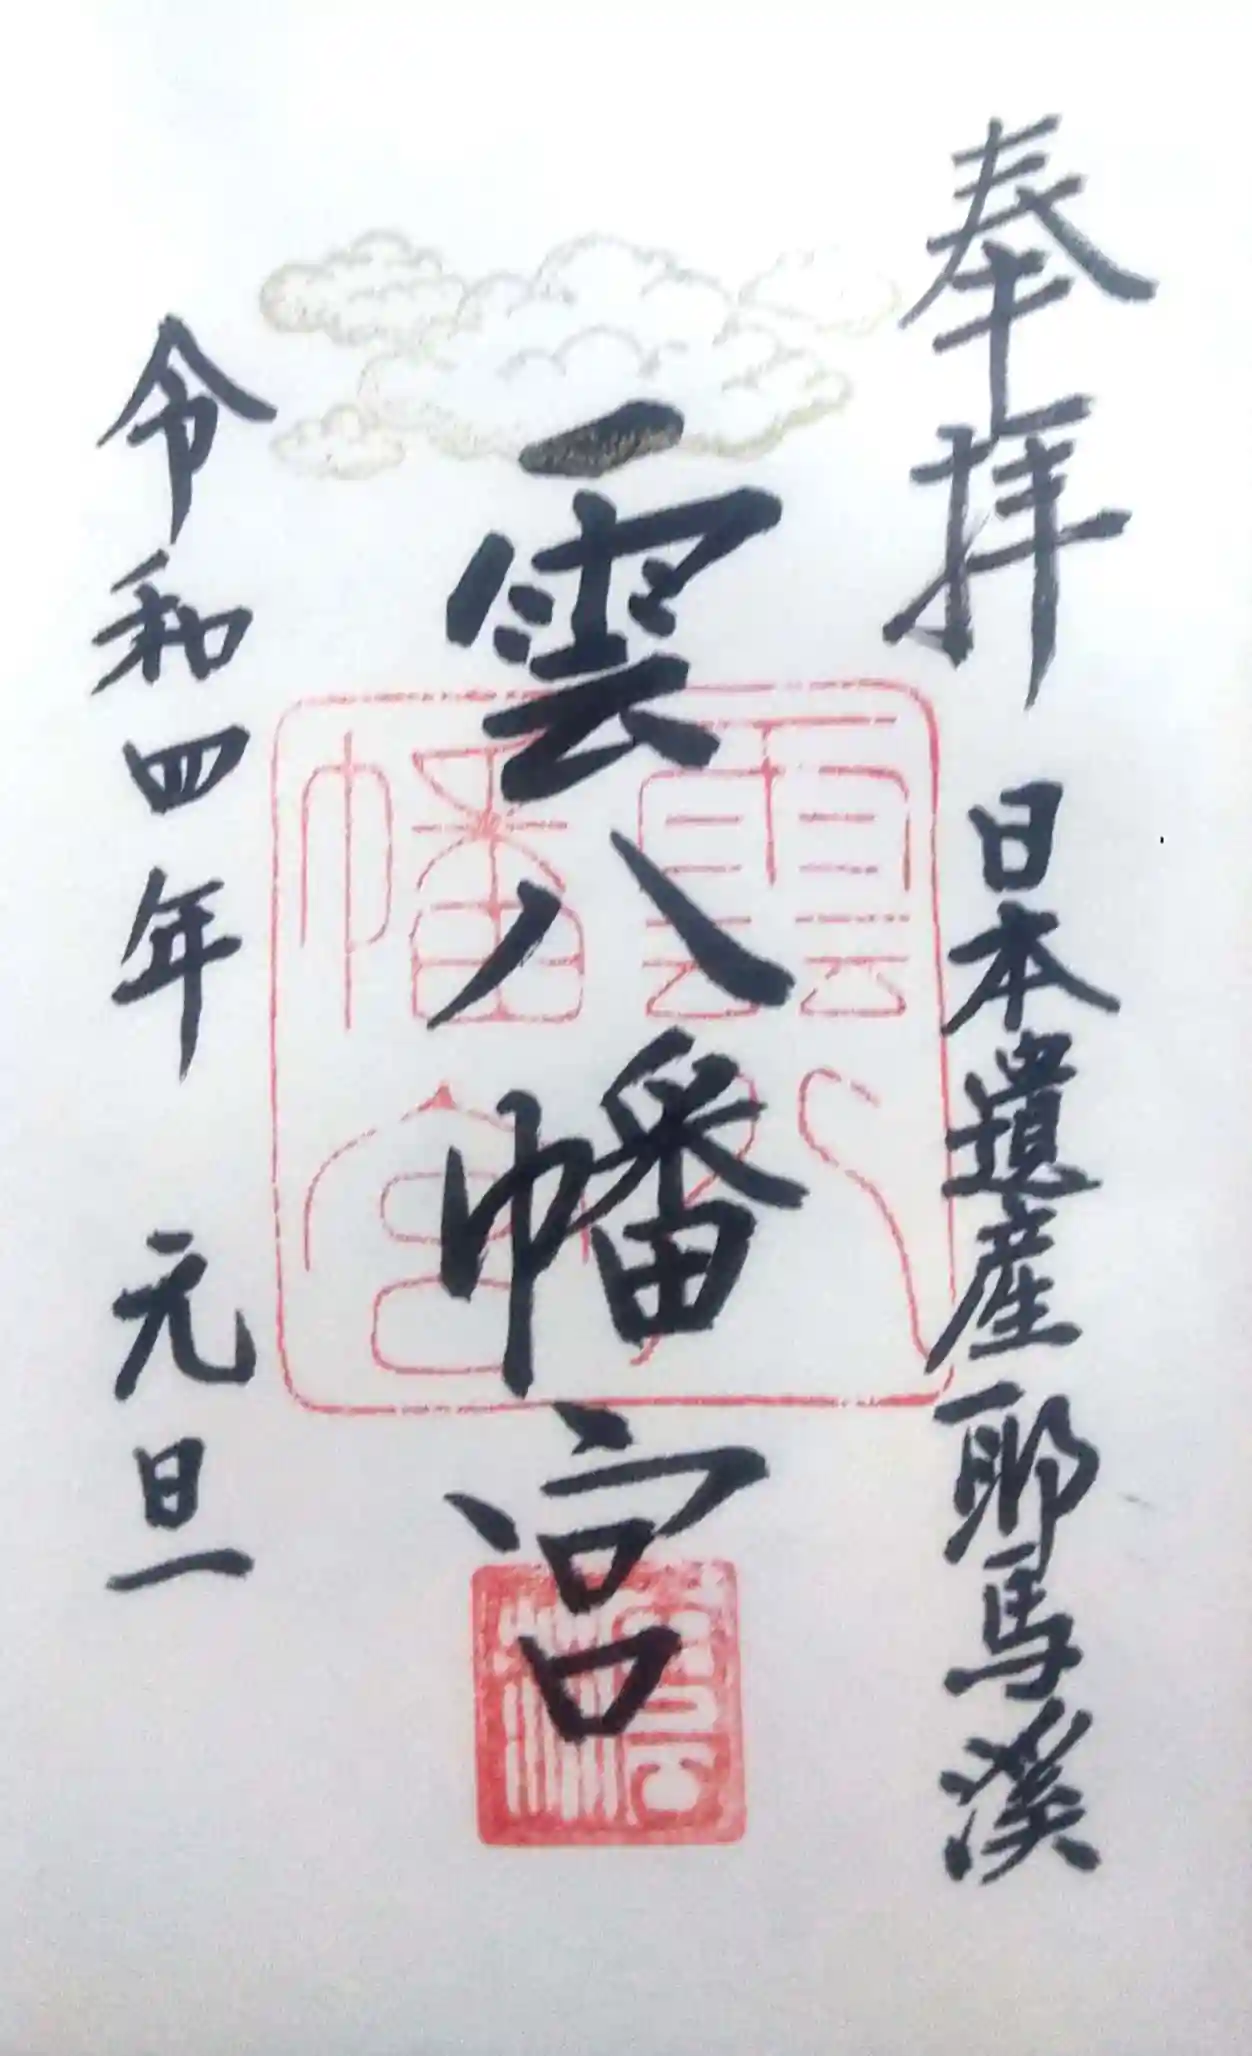 奉拝 日本遺産耶馬溪
雲八幡宮
雲八幡宮
令和四年 元旦